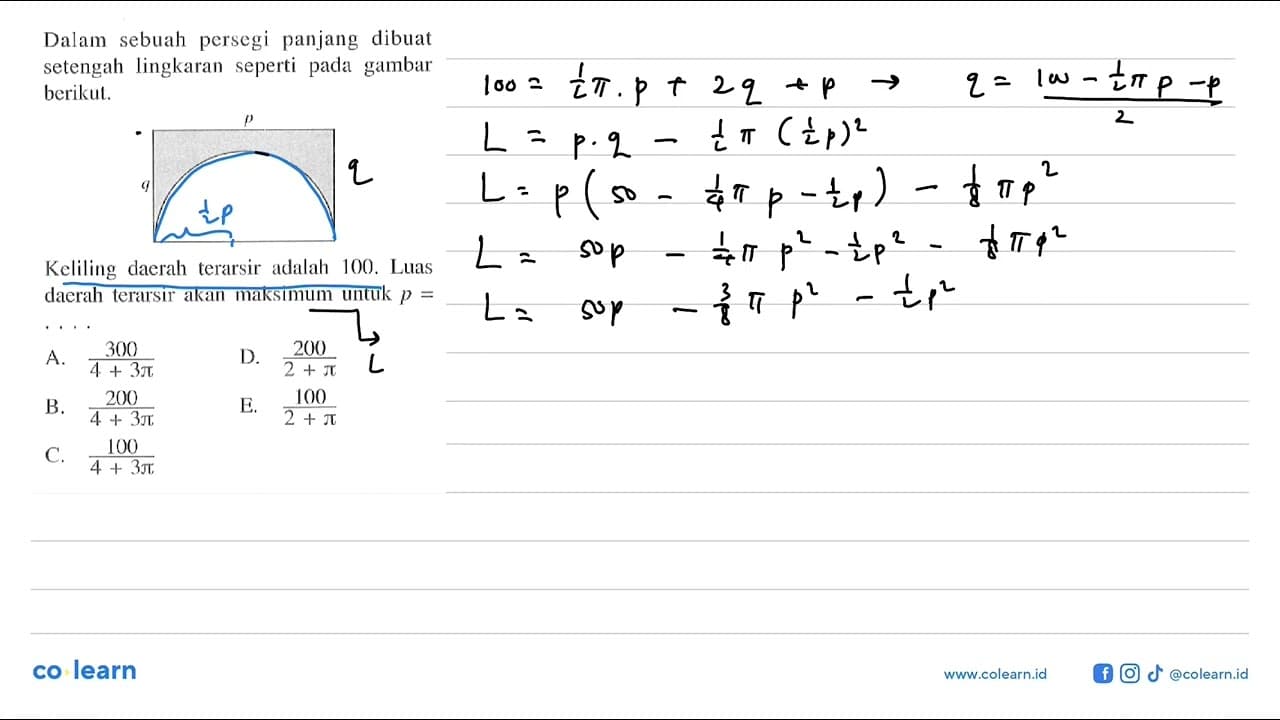 Dalam sebuah persegi panjang dibuat
setengah lingkaran seperti pada gambar
berikut.
p
q
q
½p
Keliling daerah terarsir adalah 100. Luas
daerah terarsir akan maksimum untuk p =
. . . .
L
A. 300/(4 + 3π)
D. 200/(2 + π)
B. 200/(4 + 3π)
E. 100/(2 + π)
C. 100/(4 + 3π)
100 = ½π . p + 2q + p → q = (100 - ½πp - p)/2
L = p . q - ½π (½p)²
L = p (50 - ¼πp - ½p) - ⅛πp²
L = 50p - ¼πp² - ½p² - ⅛πp²
L = 50p - ⅜πp² - ½p²
co learn
www.colearn.id
@colearn.id